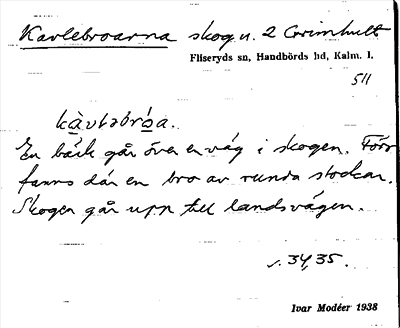 Kavlebroarna skog u. 2 Grimhult
Fliseryds sn, Handbörds hd, Kalm. l.
511
kàvləbróa.
En bäck går över en väg i skogen. Förr
fanns där en bro av runda stockar.
Skogen går upp till landsvägen.
s. 34, 35.
Ivar Modéer 1938